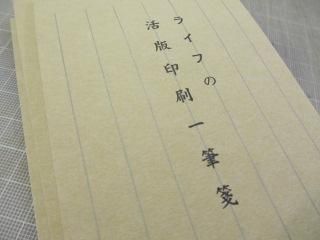 ライフの
活版印刷一筆箋